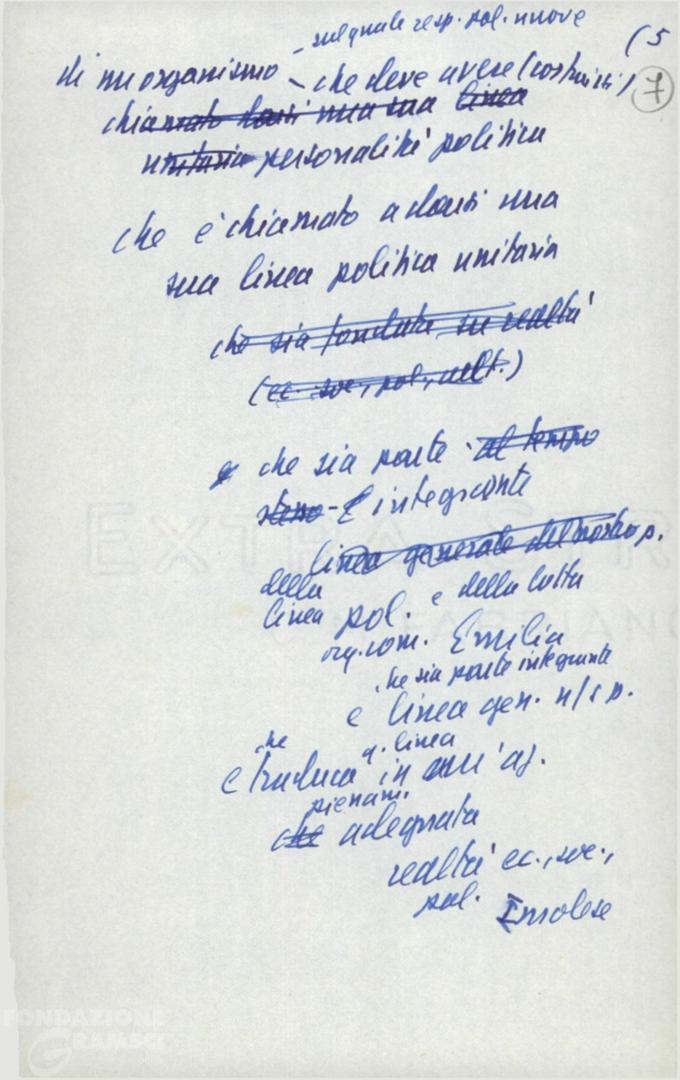 - sul quale resp. pol. nuove
(5
7
di un organismo - che deve avere (costruirsi)
chiamato darsi una sua linea
unitaria personalità politica
che è chiamato a darsi una
sua linea politica unitaria
che sia fondata su realtà
(ec. soc., pol., cult.)
e che sia parte al tempo
stesso - integrante
linea generale del nostro p.
della
linea pol. e della lotta
org. com. Emilia
che sia parte integrante
e linea gen. n/s p.
che q. linea
e traduca in un'az.
pienam.
che adeguata
realtà ec., soc.,
pol. Imolese
EXTRA STR
FABRIANO
FONDAZIONE
GRAMSCI